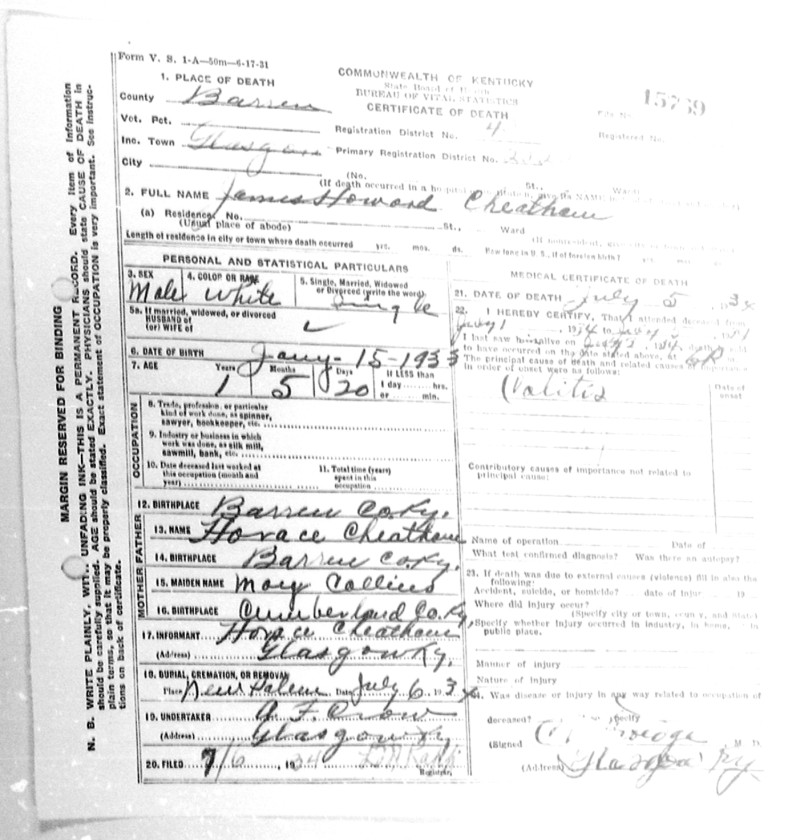 Form V. S. 1-A—50m—6-17-31
COMMONWEALTH OF KENTUCKY
State Board of Health
BUREAU OF VITAL STATISTICS
CERTIFICATE OF DEATH
15769
File No.
Registered No.
1. PLACE OF DEATH
County Barren
Vot. Pct.
Registration District No. 4
Inc. Town Glasgow
Primary Registration District No.
City
(No. St., Ward)
(If death occurred in a
2. FULL NAME James Howard Cheatham
(a) Residence, No. St., Ward
(Usual place of abode)
Length of residence in city or town where death occurred yrs. mos. ds. How long in U. S., if of foreign birth? yrs. mos.
PERSONAL AND STATISTICAL PARTICULARS
3. SEX Male
4. COLOR OR RACE White
5. Single, Married, Widowed or Divorced (write the word) Single
5a. If married, widowed, or divorced
HUSBAND of
(or) WIFE of
6. DATE OF BIRTH Jany-15-1933
7. AGE Years 1 Months 5 Days 20 If LESS than
1 day ...... hrs.
or ...... min.
OCCUPATION
8. Trade, profession, or particular
kind of work done, as spinner,
sawyer, bookkeeper, etc.
9. Industry or business in which
work was done, as silk mill,
sawmill, bank, etc.
10. Date deceased last worked at
this occupation (month and
year)
11. Total time (years)
spent in this
occupation
12. BIRTHPLACE Barren Co. Ky.
FATHER
13. NAME Horace Cheatham
14. BIRTHPLACE Barren Co. Ky.
MOTHER
15. MAIDEN NAME Mary Collins
16. BIRTHPLACE Cumberland Co. Ky.
17. INFORMANT Horace Cheatham
(Address) Glasgow Ky.
18. BURIAL, CREMATION, OR REMOVAL
Place New Salem Date July 6 1934
19. UNDERTAKER A. F. Crow
(Address) Glasgow Ky
20. FILED 7/6 1934
Registrar.
MEDICAL CERTIFICATE OF DEATH
21. DATE OF DEATH July 5, 1934
22. I HEREBY CERTIFY, That I attended deceased from
July 1, 1934 to
I last saw h alive on
to have occurred on the date stated above, at
The principal cause of death and related causes of importance
in order of onset were as follows:
Date of
onset
Contributory causes of importance not related to
principal cause:
Name of operation Date of
What test confirmed diagnosis? Was there an autopsy?
23. If death was due to external causes (violence) fill in also the
following:
Accident, suicide, or homicide? date of injur 19
Where did injury occur?
(Specify city or town, county, and State)
Specify whether injury occurred in industry, in home, in
public place.
Manner of injury
Nature of injury
24. Was disease or injury in any way related to occupation of
deceased? specify
(Signed M. D.
(Address) Glasgow Ky
MARGIN RESERVED FOR BINDING
N. B. WRITE PLAINLY, WITH UNFADING INK—THIS IS A PERMANENT RECORD. Every item of information
should be carefully supplied. AGE should be stated EXACTLY. PHYSICIANS should state CAUSE OF DEATH in
plain terms, so that it may be properly classified. Exact statement of OCCUPATION is very important. See instruc-
tions on back of certificate.